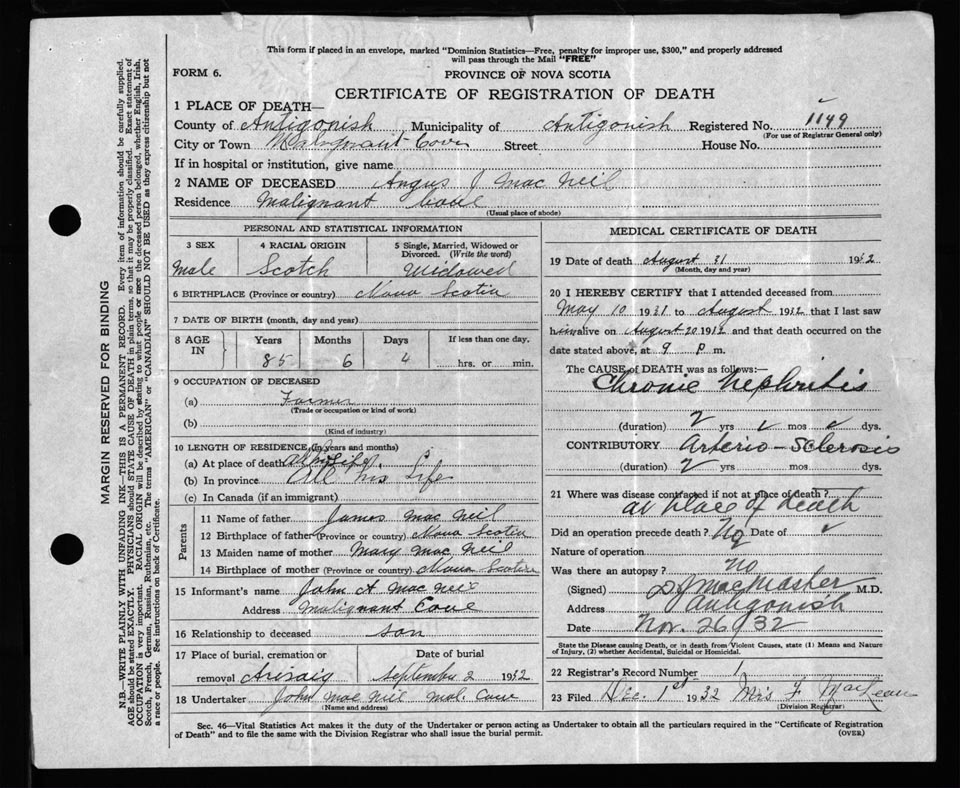 This form if placed in an envelope, marked "Dominion Statistics—Free, penalty for improper use, $300," and properly addressed
will pass through the Mail "FREE"
FORM 6.
PROVINCE OF NOVA SCOTIA
CERTIFICATE OF REGISTRATION OF DEATH
1 PLACE OF DEATH—
County of Antigonish Municipality of Antigonish Registered No. 1149
(For use of Registrar General only)
City or Town Malignant Cove Street House No.
If in hospital or institution, give name
2 NAME OF DECEASED Angus J Mac Neil
Residence Malignant Cove
(Usual place of abode)
PERSONAL AND STATISTICAL INFORMATION
3 SEX 4 RACIAL ORIGIN 5 Single, Married, Widowed or Divorced. (Write the word)
Male Scotch Widowed
6 BIRTHPLACE (Province or country) Nova Scotia
7 DATE OF BIRTH (month, day and year)
8 AGE IN Years Months Days If less than one day.
85 6 4 hrs. or min.
9 OCCUPATION OF DECEASED
(a) Farmer
(Trade or occupation or kind of work)
(b)
(Kind of industry)
10 LENGTH OF RESIDENCE (In years and months)
(a) At place of death All his Life
(b) In province All his Life
(c) In Canada (if an immigrant)
Parents
11 Name of father James Mac Neil
12 Birthplace of father (Province or country) Nova Scotia
13 Maiden name of mother Mary Mac Neil
14 Birthplace of mother (Province or country) Nova Scotia
15 Informant's name John A Mac Neil
Address Malignant Cove
16 Relationship to deceased son
17 Place of burial, cremation or Date of burial
removal Arisaig September 2 1932
18 Undertaker John Mac Neil Mal. Cove
(Name and address)
MEDICAL CERTIFICATE OF DEATH
19 Date of death August 31 1932
(Month, day and year)
20 I HEREBY CERTIFY that I attended deceased from
May 10 1931 to August 1932 that I last saw
him alive on August 20 1932 and that death occurred on the
date stated above, at 9 p m.
The CAUSE of DEATH was as follows:—
Chronic Nephritis
(duration) 2 yrs mos dys.
CONTRIBUTORY Arterio-Sclerosis
(duration) 2 yrs mos. dys.
21 Where was disease contracted if not at place of death?
at place of death
Did an operation precede death? No Date of
Nature of operation
Was there an autopsy? no
(Signed) D J MacMaster M.D.
Address Antigonish
Date Nov. 26/32
State the Disease causing Death, or in death from Violent Causes, state (1) Means and Nature
of Injury, (2) whether Accidental, Suicidal or Homicidal.
22 Registrar's Record Number 1
23 Filed Dec. 1st 1932 Mrs F MacLean
(Division Registrar)
Sec. 46—Vital Statistics Act makes it the duty of the Undertaker or person acting as Undertaker to obtain all the particulars required in the "Certificate of Registration
of Death" and to file the same with the Division Registrar who shall issue the burial permit.
(OVER)
MARGIN RESERVED FOR BINDING
N.B.—WRITE PLAINLY WITH UNFADING INK—THIS IS A PERMANENT RECORD. Every item of information should be carefully supplied.
AGE should be stated EXACTLY. PHYSICIANS should STATE CAUSE OF DEATH in plain terms, so that it may be properly classified. Exact statement of
OCCUPATION is very important. RACIAL ORIGIN will be described by stating to what people or race the deceased person belonged, whether English, Irish,
Scotch, French, German, Russian, Ruthenian, etc. The terms "AMERICAN" or "CANADIAN" SHOULD NOT BE USED as they express citizenship but not
a race or people. See instructions on back of Certificate.